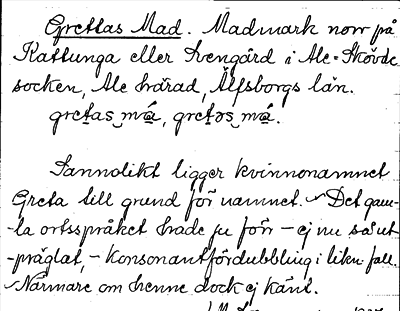 Grettas Mad. Madmark norr på
Kattunga eller Svengård i Ale-Skövde
socken, Ale härad, Älfsborgs län.
gretas må, gretəs må.
Sannolikt ligger kvinnonamnet
Greta till grund för namnet. Det gam-
-la ortsspråket hade ju förr – ej nu så ut-
-präglat, – konsonantfördubbling i likn. fall.
Närmare om henne dock ej känt.